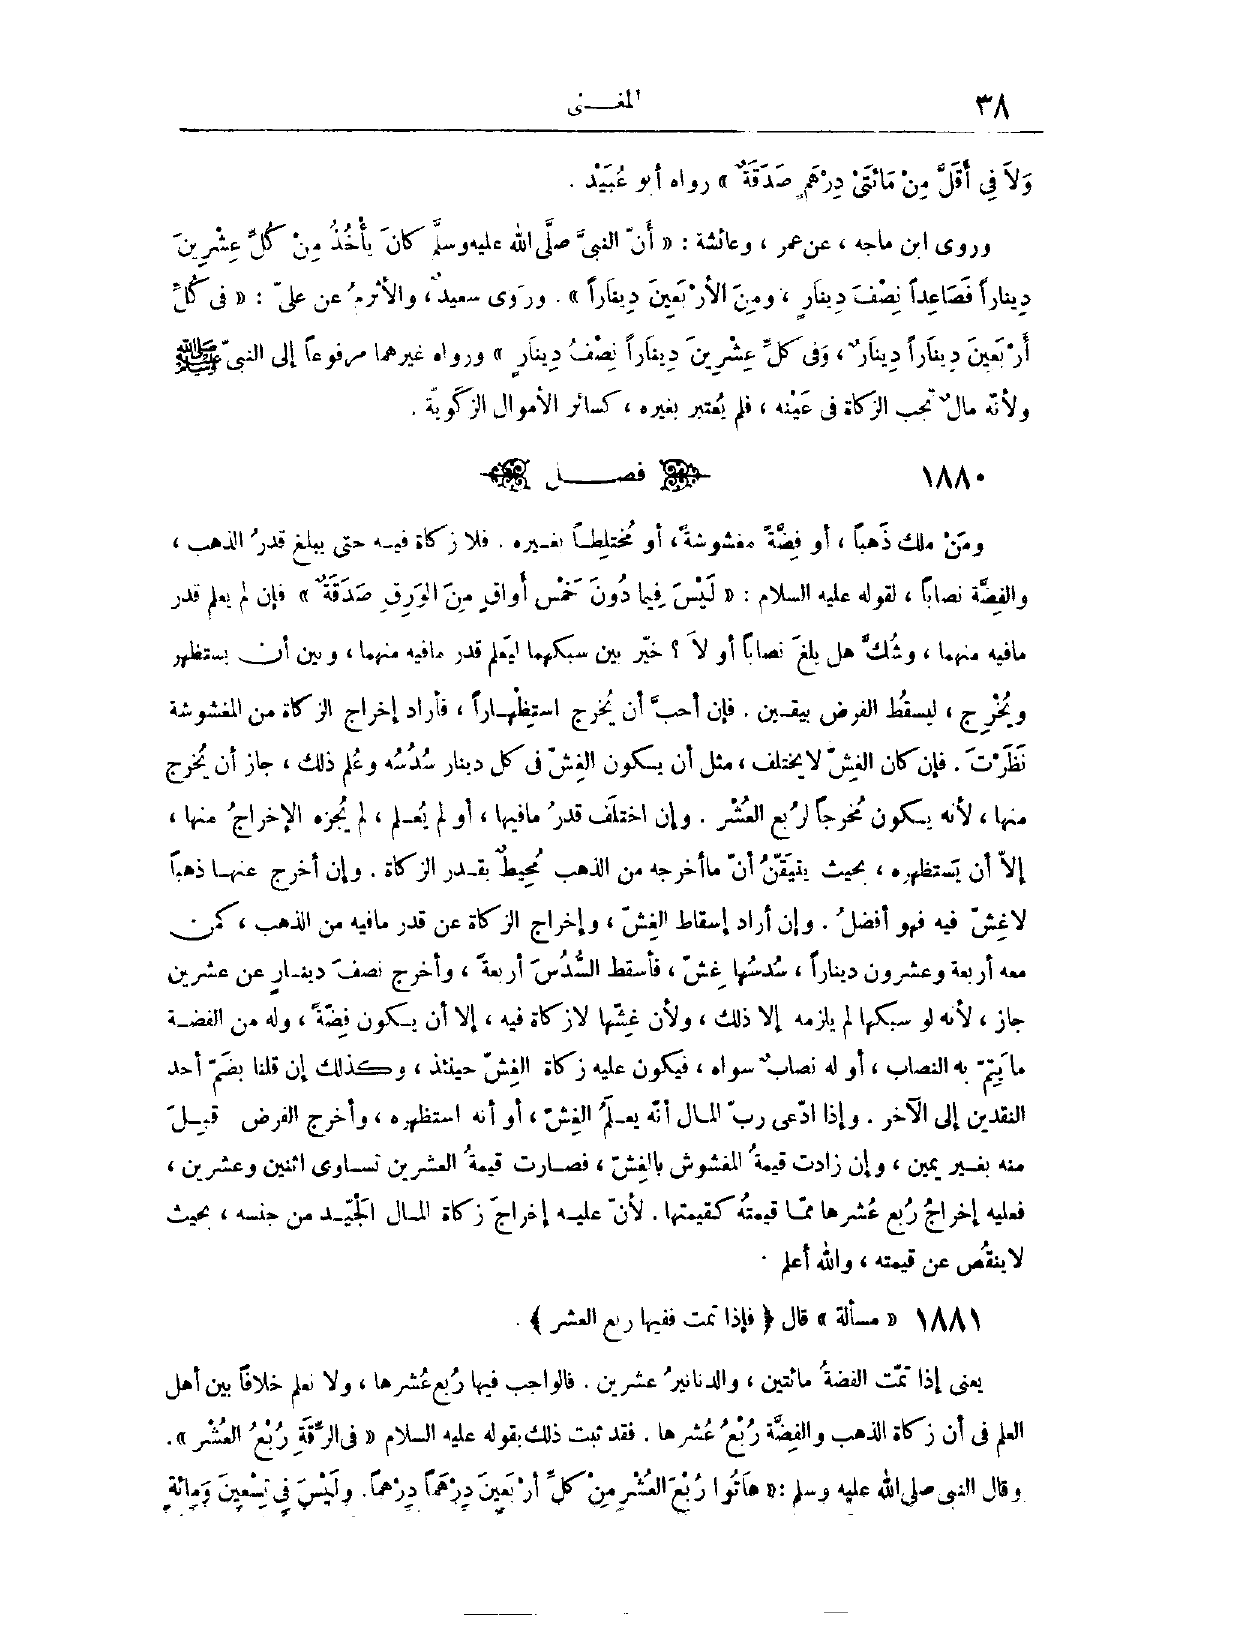 ٣٨
المغـــنى
وَلاَ فِى أَقَلَّ مِنْ مَائَتَىْ دِرْهَمٍ صَدَقَةٌ » رواه أبو عُبَيْد .
وروى ابن ماجه ، عن عمر ، وعائشة : « أَنّ النبىَّ صلَّى الله عليه وسلَّم كانَ يأْخُذُ مِنْ كلِّ عِشْرِينَ
دِيناراً فَصَاعِداً نِصْفَ دِينَارٍ ، ومِنَ الأَرْبَعِينَ دِينَاراً » . ورَوَى سعيدٌ ، والأثرمُ عن علىّ : « فى كُلِّ
أَرْبَعِينَ دِينَاراً دِينَارٌ ، وَفى كلِّ عِشْرِينَ دِينَاراً نِصْفُ دِينَارٍ » ورواه غيرهما مرفوعاً إلى النبىّ ﷺ
ولأنّه مالٌ تجب الزكاة فى عَيْنه ، فلم يُعتبر بغيره ، كسائر الأموال الزكَويّة .
١٨٨٠ فصـــل
ومَنْ ملك ذَهباً ، أو فِضَّةً مغشوشةً ، أو مُختلِطـاً بغـيره . فلا زكاة فيـه حتى يبلغ قدرُ الذهب ،
والفِضَّة نصاباً ، لقوله عليه السلام : « لَيْسَ فِيما دُونَ خَمْسِ أَواقٍ مِنَ الوَرِقِ صَدَقَةٌ » فإن لم يعلم قدر
مافيه منهما ، وشكَّ هل بلغَ نصاباً أو لاَ ؟ خيّر بين سبكهما ليَعلم قدر مافيه منهما ، وبين أن يستظهر
ويُخْرِج ، ليسقُط الفرض بيقـين . فإن أحبَّ أن يُخرج استظْهـاراً ، فأراد إخراج الزكاة من المغشوشة
نَظَرْتَ . فإن كان الغِشّ لا يختلف ، مثل أن يـكون الغِشّ فى كل دينار سُدُسُه وعُلم ذلك ، جاز أن يُخرج
منها ، لأنه يـكون مُخرجاً لرُبع العُشْر . وإن اختلَف قدرُ مافيها ، أو لم يُعـلم ، لم يُجزه الإخراجُ منها ،
إلاّ أن يَستظهره ، بحيث يتيَقّنُ أنّ ماأخرجه من الذهب مُحِيطٌ بقـدر الزكاة . وإن أخرج عنهـا ذهباً
لاغِشّ فيه فهو أفضلُ . وإن أراد إسقاط الغِشّ ، وإخراج الزكاة عن قدر مافيه من الذهب ، كمن
معه أربعة وعشرون ديناراً ، سُدسُها غِشّ ، فأسقط السُّدُسَ أربعةً ، وأخرج نصفَ دينـارٍ عن عشرين
جاز ، لأنه لو سبكها لم يلزمه إلا ذلك ، ولأن غشّها لازكاة فيه ، إلا أن يـكون فِضّةً ، وله من الفضـة
مايَتِمّ به النصاب ، أو له نصابٌ سواه ، فيكون عليه زكاة الغِشّ حينئذ ، وكذلك إن قلنا بضَمّ أحد
النقدين إلى الآخر . وإذا ادّعى ربّ المـال أنّه يعـلَمُ الغِشّ ، أو أنه استظهره ، وأخرج الفرض قبِـلَ
منه بغـير يمين ، وإن زادت قيمةُ المغشوش بالغِشّ ، فصـارت قيمةُ العشرين تسـاوى اثنين وعشرين ،
فعليه إخراجُ رُبع عُشرها ممّـا قيمتُه كقيمتها . لأنّ عليـه إخراجَ زكاة المـال الجَيّـد من جنسه ، بحيث
لاينقُص عن قيمته ، والله أعلم .
١٨٨١ « مسألة » قال ﴿ فإذا تمت ففيها ربع العشر ﴾ .
يعنى إذا تمّت الفضةُ مائتين ، والدنانيرُ عشرين . فالواجب فيها رُبع عُشرها ، ولا نعلم خلافاً بين أهل
العلم فى أن زكاة الذهب والفِضَّة رُبْعُ عُشرها . فقد ثبت ذلك بقوله عليه السلام « فى الرِّقَةِ رُبْعُ العُشْرِ » .
وقال النبى صلى الله عليه وسلم : « هَاتُوا رُبْعَ العُشْرِ مِنْ كلِّ أَرْبَعِينَ دِرْهَماً دِرْهَماً . ولَيْسَ فِى تِسْعِينَ وَمِائَةٍ